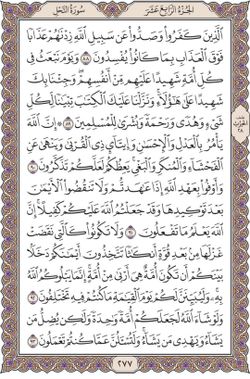 الجزء الرابع عشر
سورة النحل
الذين كفروا وصدوا عن سبيل الله زدناهم عذابا
فوق العذاب بما كانوا يفسدون ٨٨ ويوم نبعث في
كل أمة شهيدا عليهم من أنفسهم وجئنا بك
شهيدا على هؤلاء ونزلنا عليك الكتاب تبيانا لكل
شيء وهدى ورحمة وبشرى للمسلمين ٨٩ إن الله
يأمر بالعدل والإحسان وإيتاء ذي القربى وينهى عن
الفحشاء والمنكر والبغي يعظكم لعلكم تذكرون ٩٠
وأوفوا بعهد الله إذا عاهدتم ولا تنقضوا الأيمان
بعد توكيدها وقد جعلتم الله عليكم كفيلا إن
الله يعلم ما تفعلون ٩١ ولا تكونوا كالتي نقضت
غزلها من بعد قوة أنكاثا تتخذون أيمانكم دخلا
بينكم أن تكون أمة هي أربى من أمة إنما يبلوكم الله
به وليبينن لكم يوم القيامة ما كنتم فيه تختلفون ٩٢
ولو شاء الله لجعلكم أمة واحدة ولكن يضل من
يشاء ويهدي من يشاء ولتسألن عما كنتم تعملون ٩٣
٢٧٧